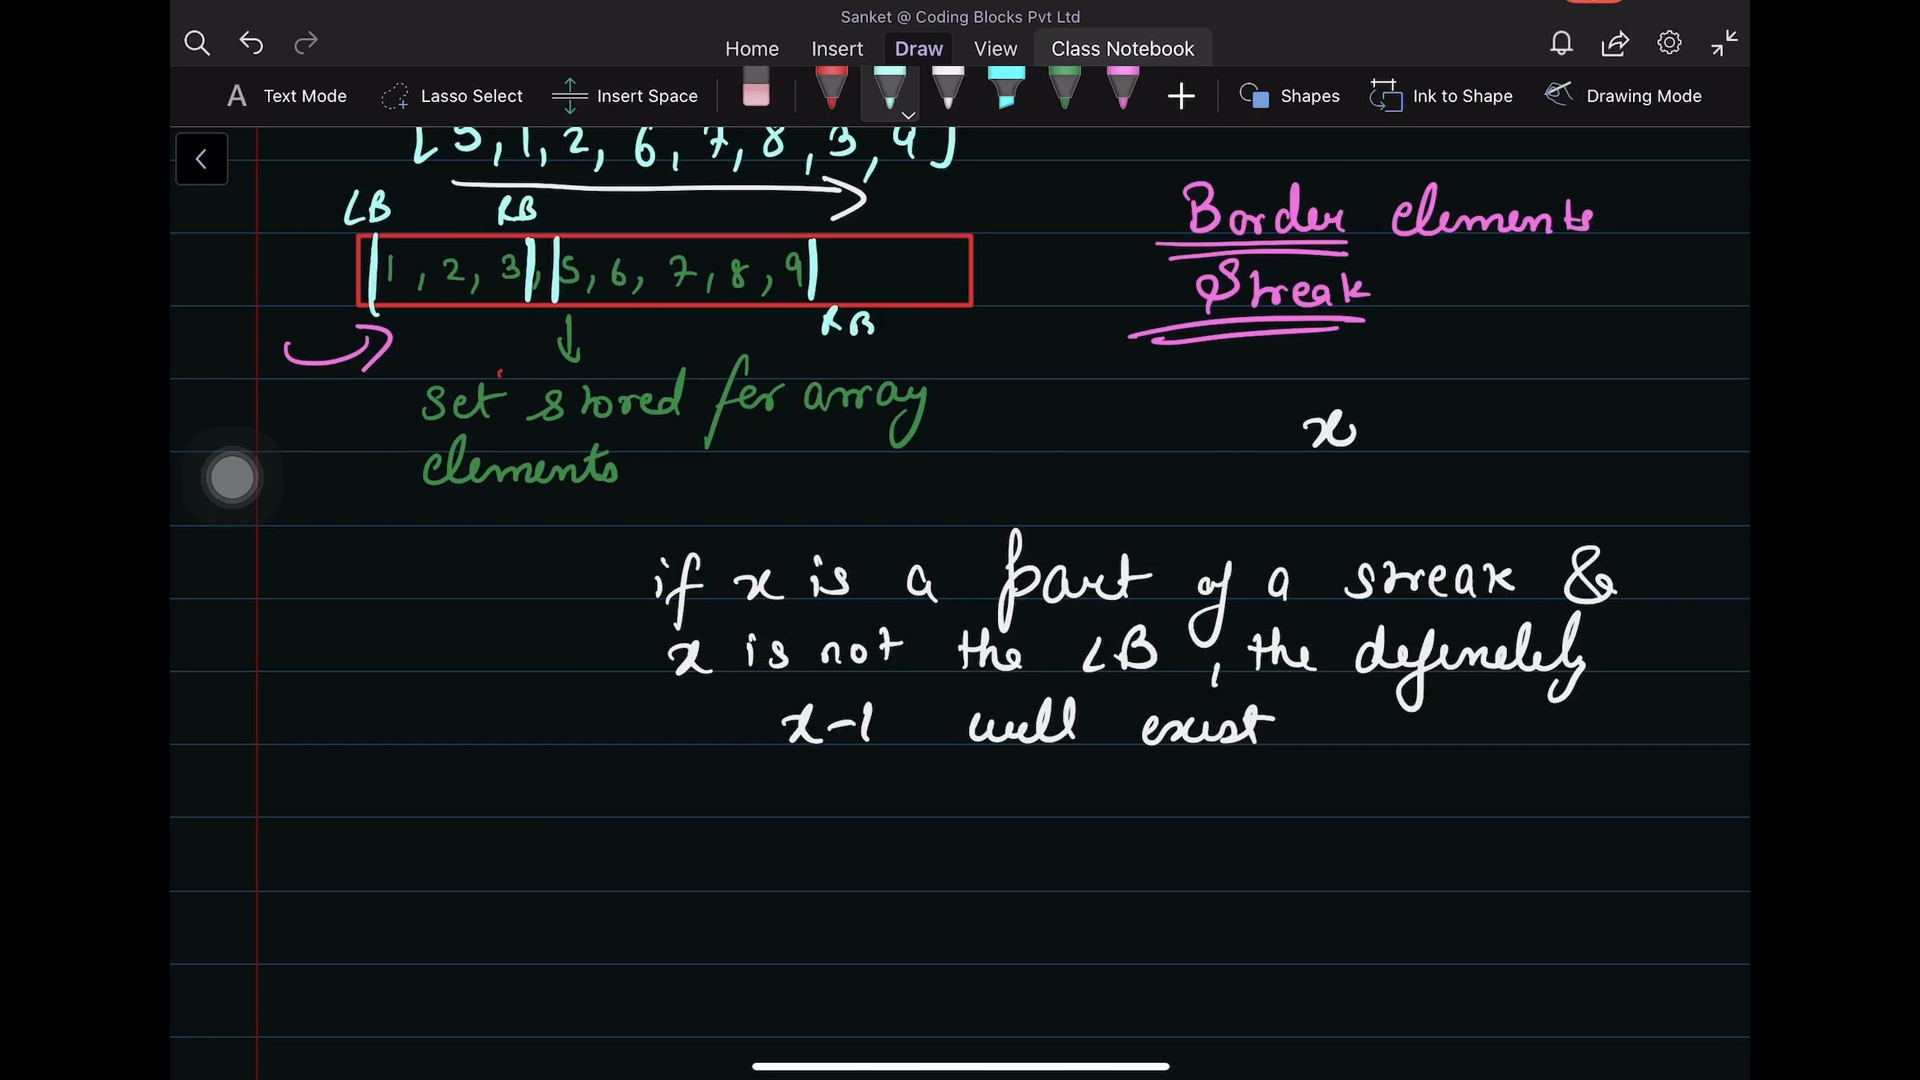 Sanket @ Coding Blocks Pvt Ltd
Home Insert Draw View Class Notebook
A Text Mode Lasso Select Insert Space Shapes Ink to Shape Drawing Mode
[5, 1, 2, 6, 7, 8, 3, 9]
LB RB
1, 2, 3, 5, 6, 7, 8, 9
RB
Border elements
Streak
set stored for array
elements
x
if x is a part of a streak &
x is not the LB, the definetely
x-1 will exist